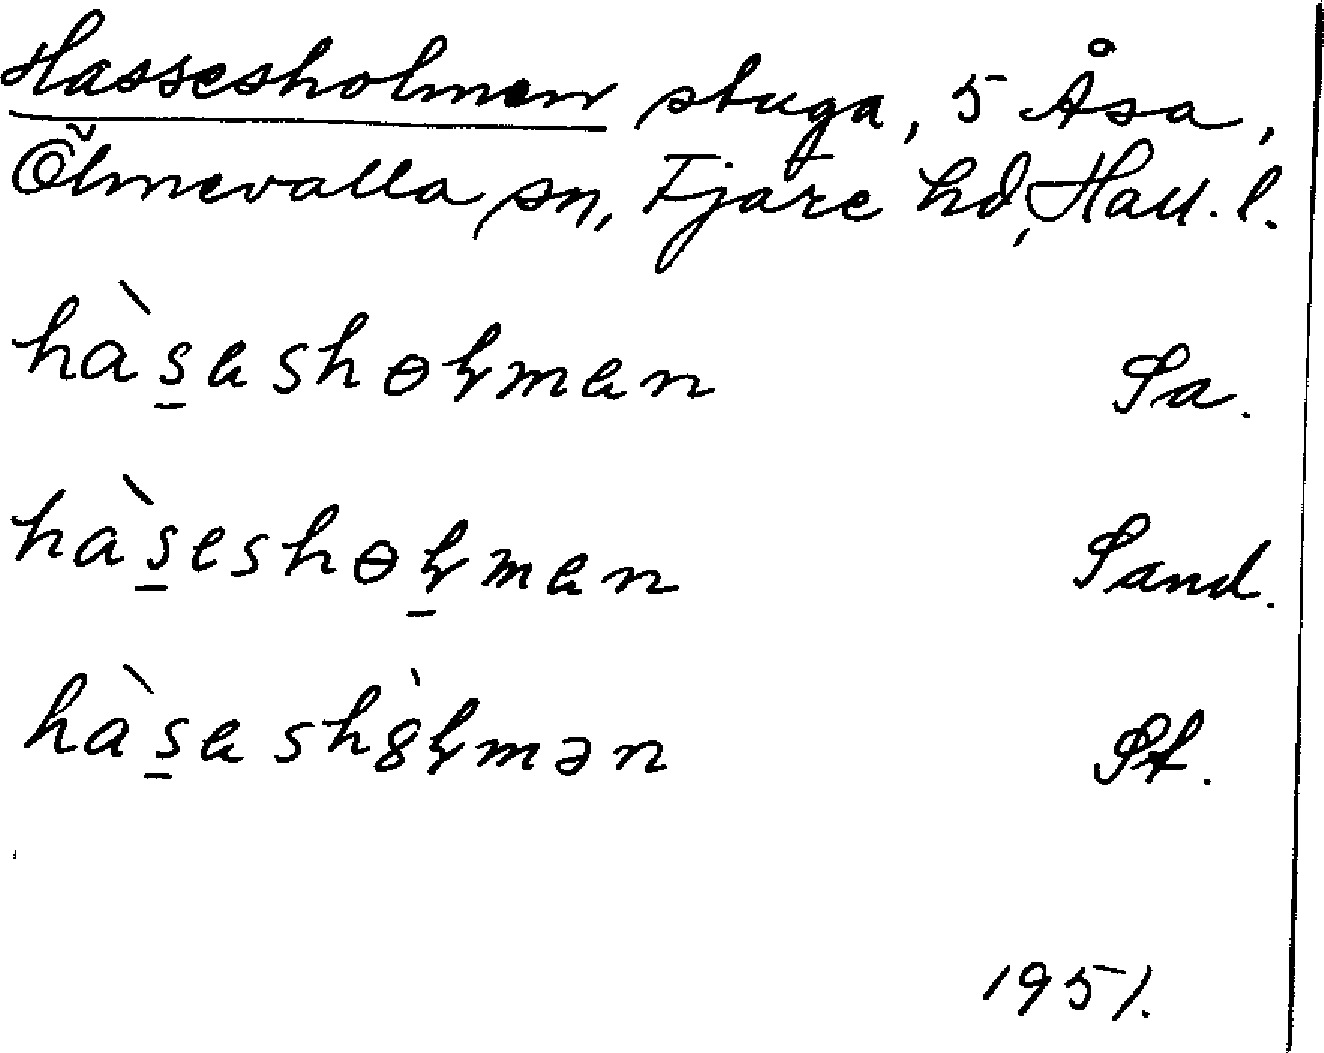 Hassesholmen stuga, 5 Åsa,
Ölmevalla sn, Fjäre hd, Hall. l.
hàs̱ɐshɵɫmɐn Sa.
hàs̱eshɵɫ̱mɐn Sand.
hàs̱ɐsh8̀ɫmən St.
1951.